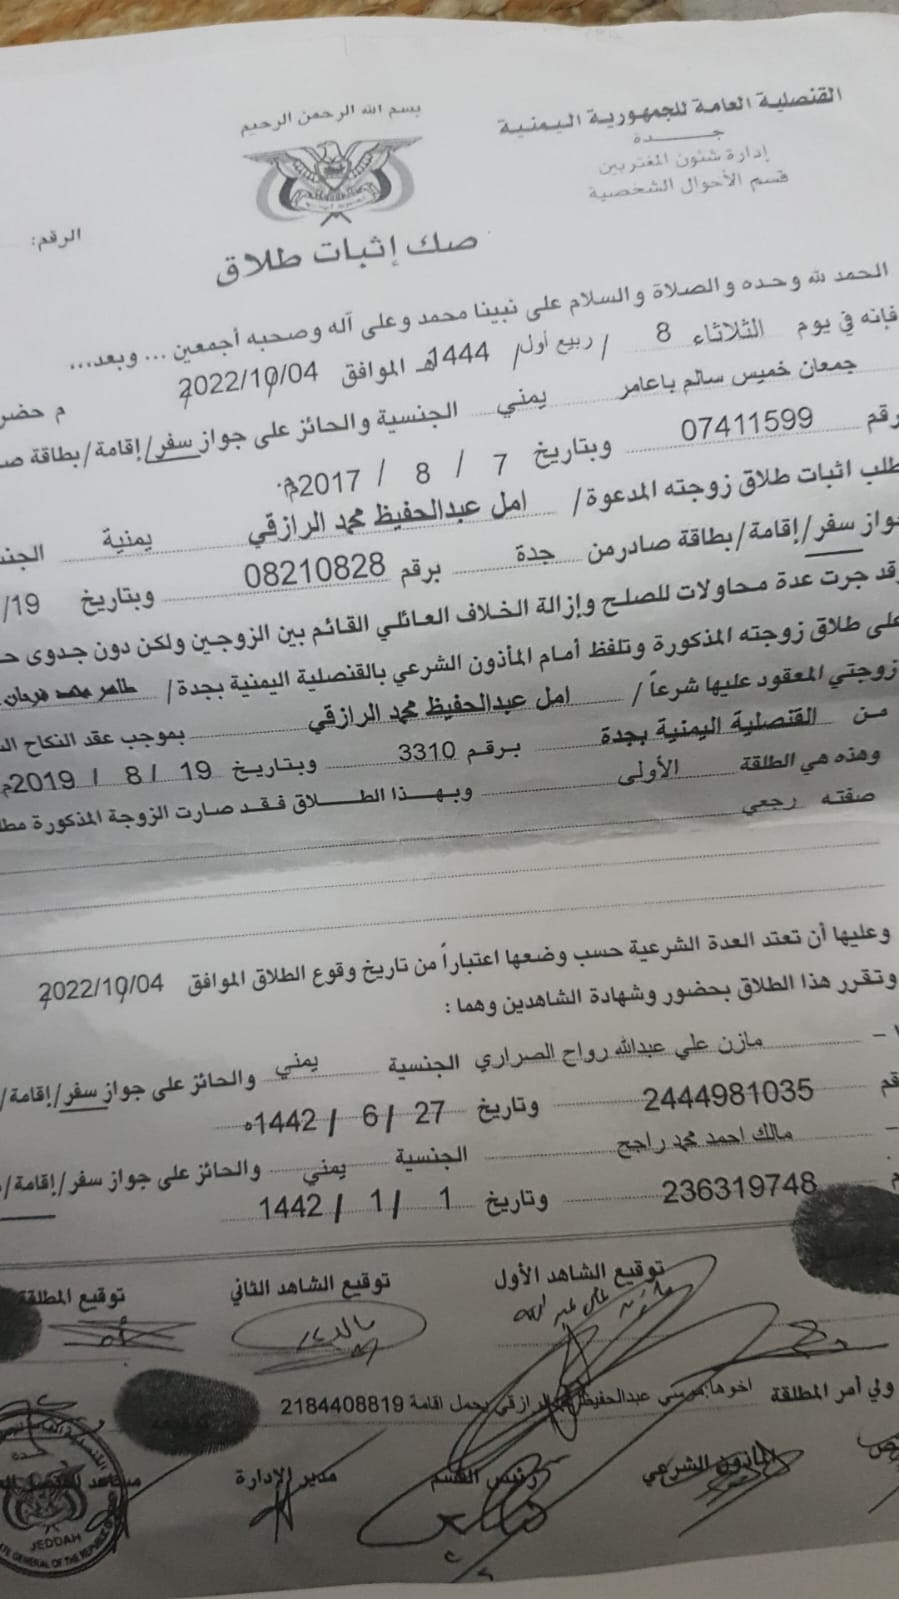 القنصلية العامة للجمهورية اليمنية
جــــدة
إدارة شئون المغتربين
قسم الأحوال الشخصية
بسم الله الرحمن الرحيم
الرقم:
صك إثبات طلاق
الحمد لله وحده والصلاة والسلام على نبينا محمد وعلى آله وصحبه أجمعين ... وبعد...
فإنه في يوم الثلاثاء 8 / ربيع أول / 1444هـ الموافق 2022/10/04 م حضر
جمعان خميس سالم باعامر يمني الجنسية والحائز على جواز سفر/إقامة/بطاقة
رقم 07411599 وبتاريخ 7 / 8 / 2017م.
طلب اثبات طلاق زوجته المدعوة/ امل عبدالحفيظ محمد الرازقي يمنية
جواز سفر/إقامة/بطاقة صادر من جدة برقم 08210828 وبتاريخ 19/
وقد جرت عدة محاولات للصلح وإزالة الخلاف العائلي القائم بين الزوجين ولكن دون جدوى
على طلاق زوجته المذكورة وتلفظ أمام المأذون الشرعي بالقنصلية اليمنية بجدة/ طاهر محمد فرحان
زوجتي المعقود عليها شرعاً/ امل عبدالحفيظ محمد الرازقي بموجب عقد النكاح
من القنصلية اليمنية بجدة برقم 3310 وبتاريخ 19 / 8 / 2019م
وهذه هي الطلقة الأولى وبهذا الطلاق فقد صارت الزوجة المذكورة
صفته رجعي
وعليها أن تعتد العدة الشرعية حسب وضعها اعتباراً من تاريخ وقوع الطلاق الموافق 2022/10/04
وتقرر هذا الطلاق بحضور وشهادة الشاهدين وهما :
مازن علي عبدالله رواح الصراري الجنسية يمني والحائز على جواز سفر/إقامة/
2444981035 وتاريخ 27 / 6 / 1442ه
مالك احمد محمد راجح الجنسية يمني والحائز على جواز سفر/إقامة/
236319748 وتاريخ 1 / 1 / 1442
توقيع الشاهد الأول توقيع الشاهد الثاني توقيع المطلقة
ولي أمر المطلقة اخوها/موسى عبدالحفيظ الرازقي يحمل اقامة 2184408819
المأذون الشرعي رئيس القسم مدير الإدارة
JEDDAH